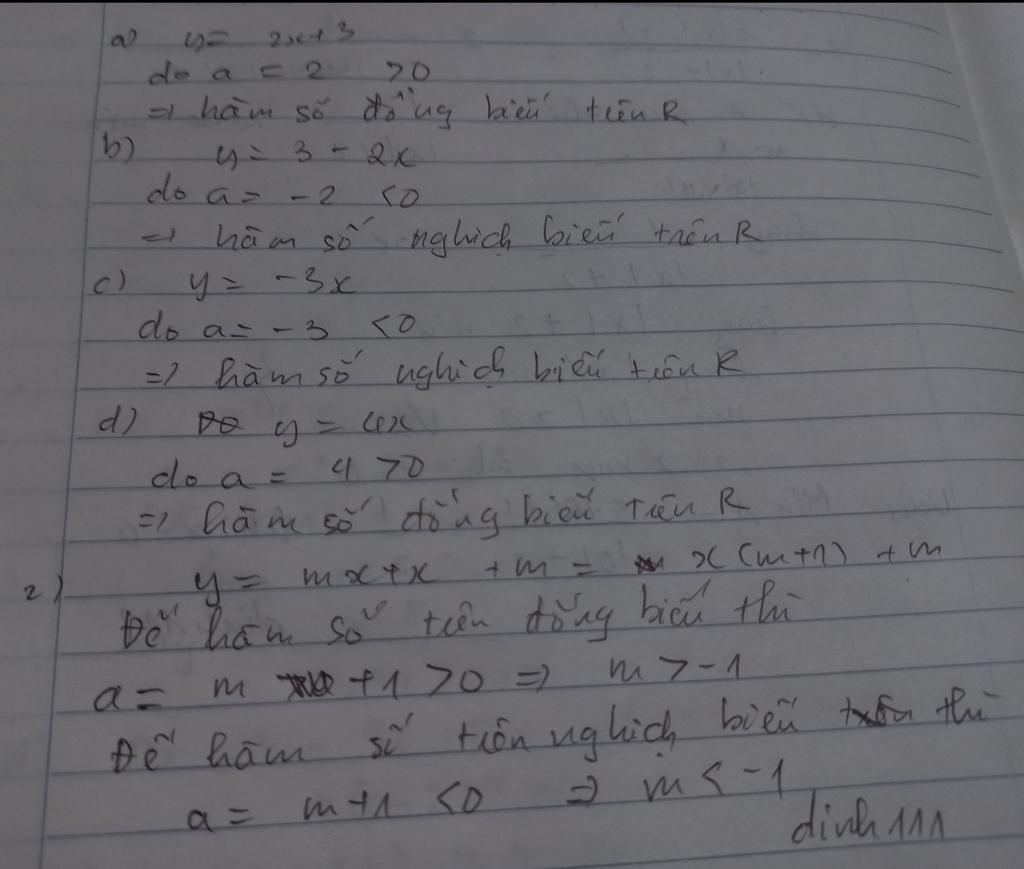 a) y = 2x+3
do a = 2 >0
=> hàm số đồng biến trên R
b) y = 3 - 2x
do a = -2 <0
=> hàm số nghịch biến trên R
c) y = -3x
do a = -3 <0
=> hàm số nghịch biến trên R
d) y = 4x
do a = 4 >0
=> hàm số đồng biến trên R
2) y = mx+x +m = x (m+1) +m
Để hàm số trên đồng biến thì
a = m +1 >0 => m > -1
Để hàm số trên nghịch biến thì
a = m+1 <0 => m < -1
dinh111